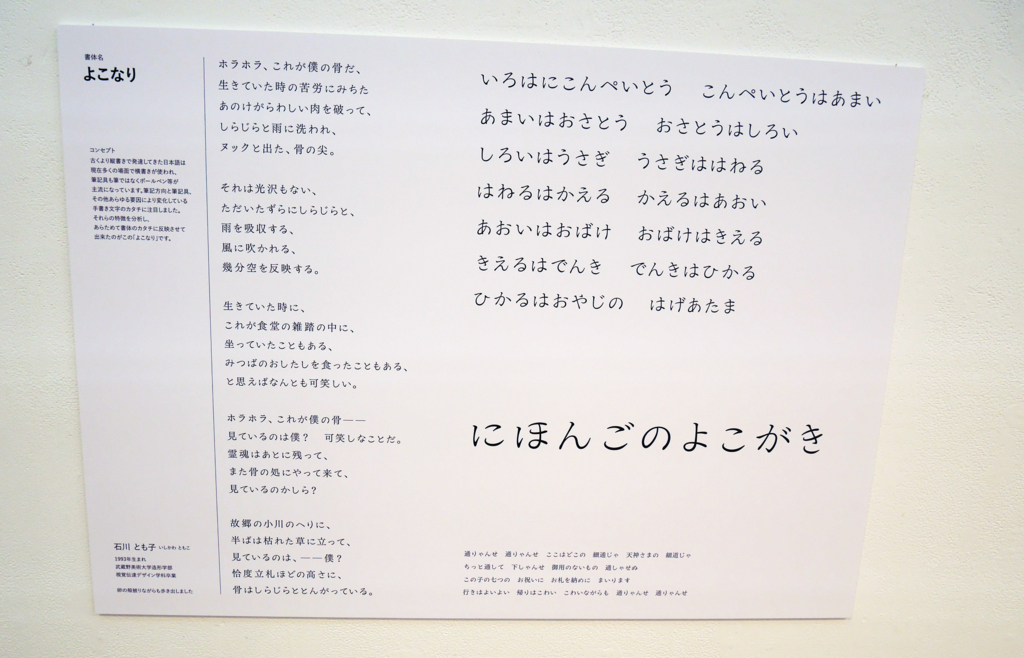 書体名
よこなり
コンセプト
古くより縦書きで発達してきた日本語は
現在多くの場面で横書きが使われ、
筆記具も筆ではなくボールペン等が
主流になっています。筆記方向と筆記具、
その他あらゆる要因により変化している
手書き文字のカタチに注目しました。
それらの特徴を分析し、
あらためて書体のカタチに反映させて
出来たのがこの「よこなり」です。
石川 とも子 いしかわ ともこ
1993年生まれ
武蔵野美術大学造形学部
視覚伝達デザイン学科卒業
ながらも歩き出しました
ホラホラ、これが僕の骨だ、
生きていた時の苦労にみちた
あのけがらわしい肉を破って、
しらじらと雨に洗われ、
ヌックと出た、骨の尖。
それは光沢もない、
ただいたずらにしらじらと、
雨を吸収する、
風に吹かれる、
幾分空を反映する。
生きていた時に、
これが食堂の雑踏の中に、
坐っていたこともある、
みつばのおしたしを食ったこともある、
と思えばなんとも可笑しい。
ホラホラ、これが僕の骨――
見ているのは僕? 可笑しなことだ。
霊魂はあとに残って、
また骨の処にやって来て、
見ているのかしら?
故郷の小川のへりに、
半ばは枯れた草に立って、
見ているのは、――僕?
恰度立札ほどの高さに、
骨はしらじらととんがっている。
いろはにこんぺいとう こんぺいとうはあまい
あまいはおさとう おさとうはしろい
しろいはうさぎ うさぎははねる
はねるはかえる かえるはあおい
あおいはおばけ おばけはきえる
きえるはでんき でんきはひかる
ひかるはおやじの はげあたま
にほんごのよこがき
通りゃんせ 通りゃんせ ここはどこの 細通じゃ 天神さまの 細道じゃ
ちっと通して 下しゃんせ 御用のないもの 通しゃせぬ
この子の七つの お祝いに お札を納めに まいります
行きはよいよい 帰りはこわい こわいながらも 通りゃんせ 通りゃんせ